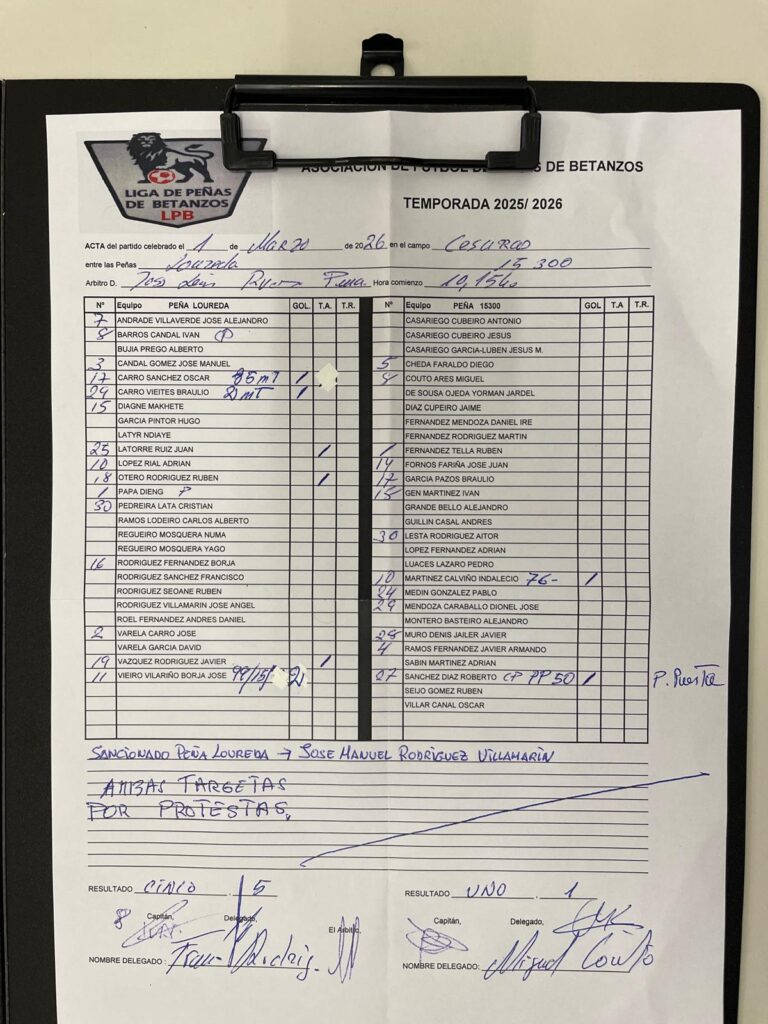 LIGA DE PEÑAS
DE BETANZOS
LPB
ASOCIACION DE FUTBOL DE BETANZOS
TEMPORADA 2025/ 2026
ACTA del partido celebrado el 1 de Marzo de 2026 en el campo Cesuras
entre las Peñas Loureda 15 300
Arbitro D. Jose Luis Pena Hora comienzo 10,15h
Nº Equipo PEÑA LOUREDA GOL. T.A. T.R.
7 ANDRADE VILLAVERDE JOSE ALEJANDRO
8 BARROS CANDAL IVAN
BUJIA PREGO ALBERTO
3 CANDAL GOMEZ JOSE MANUEL
17 CARRO SANCHEZ OSCAR /
29 CARRO VIEITES BRAULIO /
15 DIAGNE MAKHETE
GARCIA PINTOR HUGO
LATYR NDIAYE
25 LATORRE RUIZ JUAN /
10 LOPEZ RIAL ADRIAN
18 OTERO RODRIGUEZ RUBEN /
1 PAPA DIENG P
30 PEDREIRA LATA CRISTIAN
RAMOS LODEIRO CARLOS ALBERTO
REGUEIRO MOSQUERA NUMA
REGUEIRO MOSQUERA YAGO
16 RODRIGUEZ FERNANDEZ BORJA
RODRIGUEZ SANCHEZ FRANCISCO
RODRIGUEZ SEOANE RUBEN
RODRIGUEZ VILLAMARIN JOSE ANGEL
ROEL FERNANDEZ ANDRES DANIEL
2 VARELA CARRO JOSE
VARELA GARCIA DAVID
19 VAZQUEZ RODRIGUEZ JAVIER /
11 VIEIRO VILARIÑO BORJA JOSE 2
Nº Equipo PEÑA 15300 GOL T.A T.R.
CASARIEGO CUBEIRO ANTONIO
CASARIEGO CUBEIRO JESUS
CASARIEGO GARCIA-LUBEN JESUS M.
5 CHEDA FARALDO DIEGO
8 COUTO ARES MIGUEL
DE SOUSA OJEDA YORMAN JARDEL
DIAZ CUPEIRO JAIME
FERNANDEZ MENDOZA DANIEL IRE
FERNANDEZ RODRIGUEZ MARTIN
1 FERNANDEZ TELLA RUBEN
14 FORNOS FARIÑA JOSE JUAN
17 GARCIA PAZOS BRAULIO
15 GEN MARTINEZ IVAN
GRANDE BELLO ALEJANDRO
GUILLIN CASAL ANDRES
30 LESTA RODRIGUEZ AITOR
LOPEZ FERNANDEZ ADRIAN
LUACES LAZARO PEDRO
10 MARTINEZ CALVIÑO INDALECIO 76- /
24 MEDIN GONZALEZ PABLO
29 MENDOZA CARABALLO DIONEL JOSE
MONTERO BASTEIRO ALEJANDRO
28 MURO DENIS JAILER JAVIER
4 RAMOS FERNANDEZ JAVIER ARMANDO
SABIN MARTINEZ ADRIAN
27 SANCHEZ DIAZ ROBERTO CP PP 50 / P. Puesta
SEIJO GOMEZ RUBEN
VILLAR CANAL OSCAR
SANCIONADO PEÑA LOUREDA → JOSE MANUEL RODRIGUEZ VILLAMARIN
AMBAS TARGETAS
POR PROTESTAS.
RESULTADO CINCO . 5
RESULTADO UNO . 1
8 Capitán, Delegado, El Arbitro,
Capitán, Delegado,
NOMBRE DELEGADO : Fran Rodrig.
NOMBRE DELEGADO: Miguel Couto